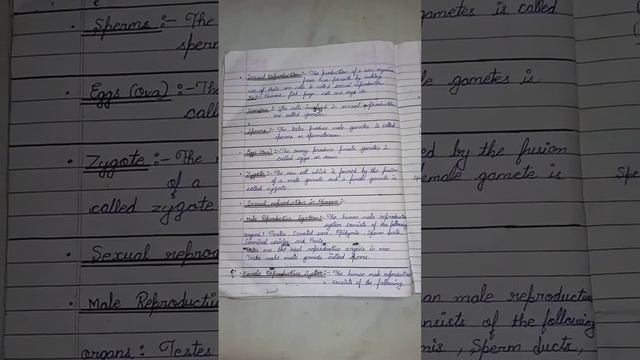 Sexual Reproduction :- The production of a new organism
from two parents by making
use of their sex cells is called sexual reproduction.
Ex:- Humans, fish, frogs, cats and dogs etc.
Gametes :- The cells involved in sexual reproduction
are called gametes.
Sperms :- The testes produce male gametes is called
sperms or spermatozoa.
Eggs (Ova) :- The ovary produce female gametes is
called eggs or ovum.
Zygote :- The new cell which is formed by the fusion
of a male gamete and a female gamete is
called zygote.
Sexual reproduction in Humans :-
Male Reproductive System :- The human male reproductive
system consists of the following
organs : Testes, Scrotal sacs, Epididymis, Sperm ducts,
Seminal vesicles and Penis.
Testes are the real reproductive organs in man.
Testes make male gametes called sperms.
Female Reproductive System :- The human male reproductive
consists of the following
Sperms :- The
sperm
Eggs (Ova) :- The
call
Zygote :- The
of a
called zygote
Sexual repro
Male Reproducti
organs : Testes
gametes is called
le gametes is
ed by the fusion
female gamete is
an male reproductive
nsists of the following
mis, Sperm ducts,
Spe